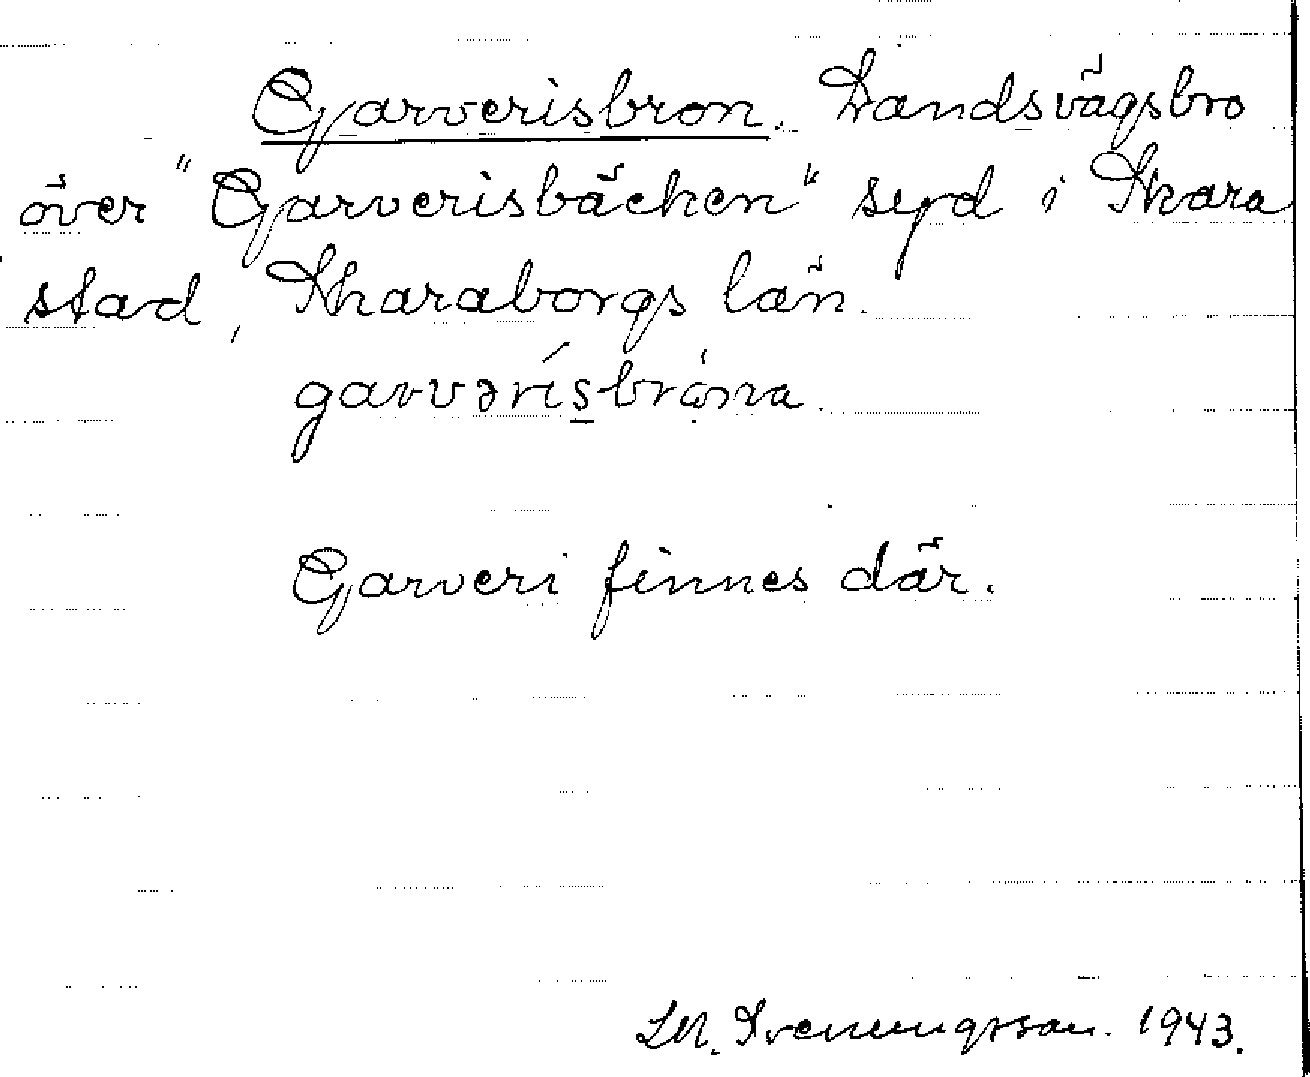 Garverisbron. Landsvägsbro
över "Garverisbäcken" syd i Skara
stad, Skaraborgs län.
garvərísbróna.
Garveri finnes där.
Svenungsson. 1943.